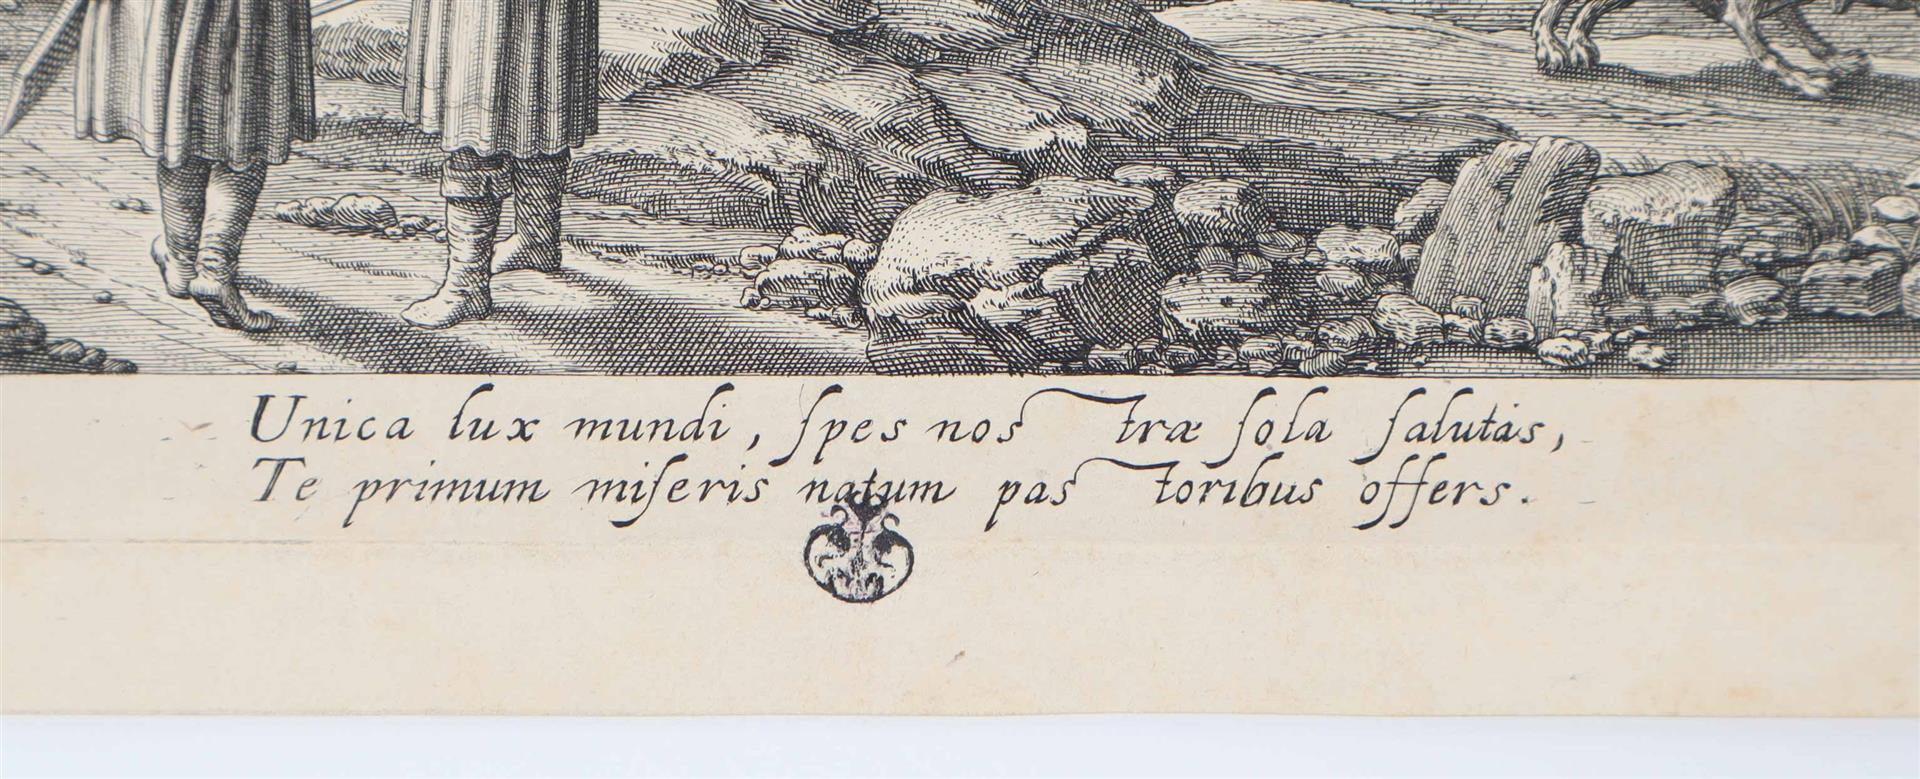 Unica lux mundi, ſpes nostræ ſola ſalutis,
Te primum miſeris natum pastoribus offers.